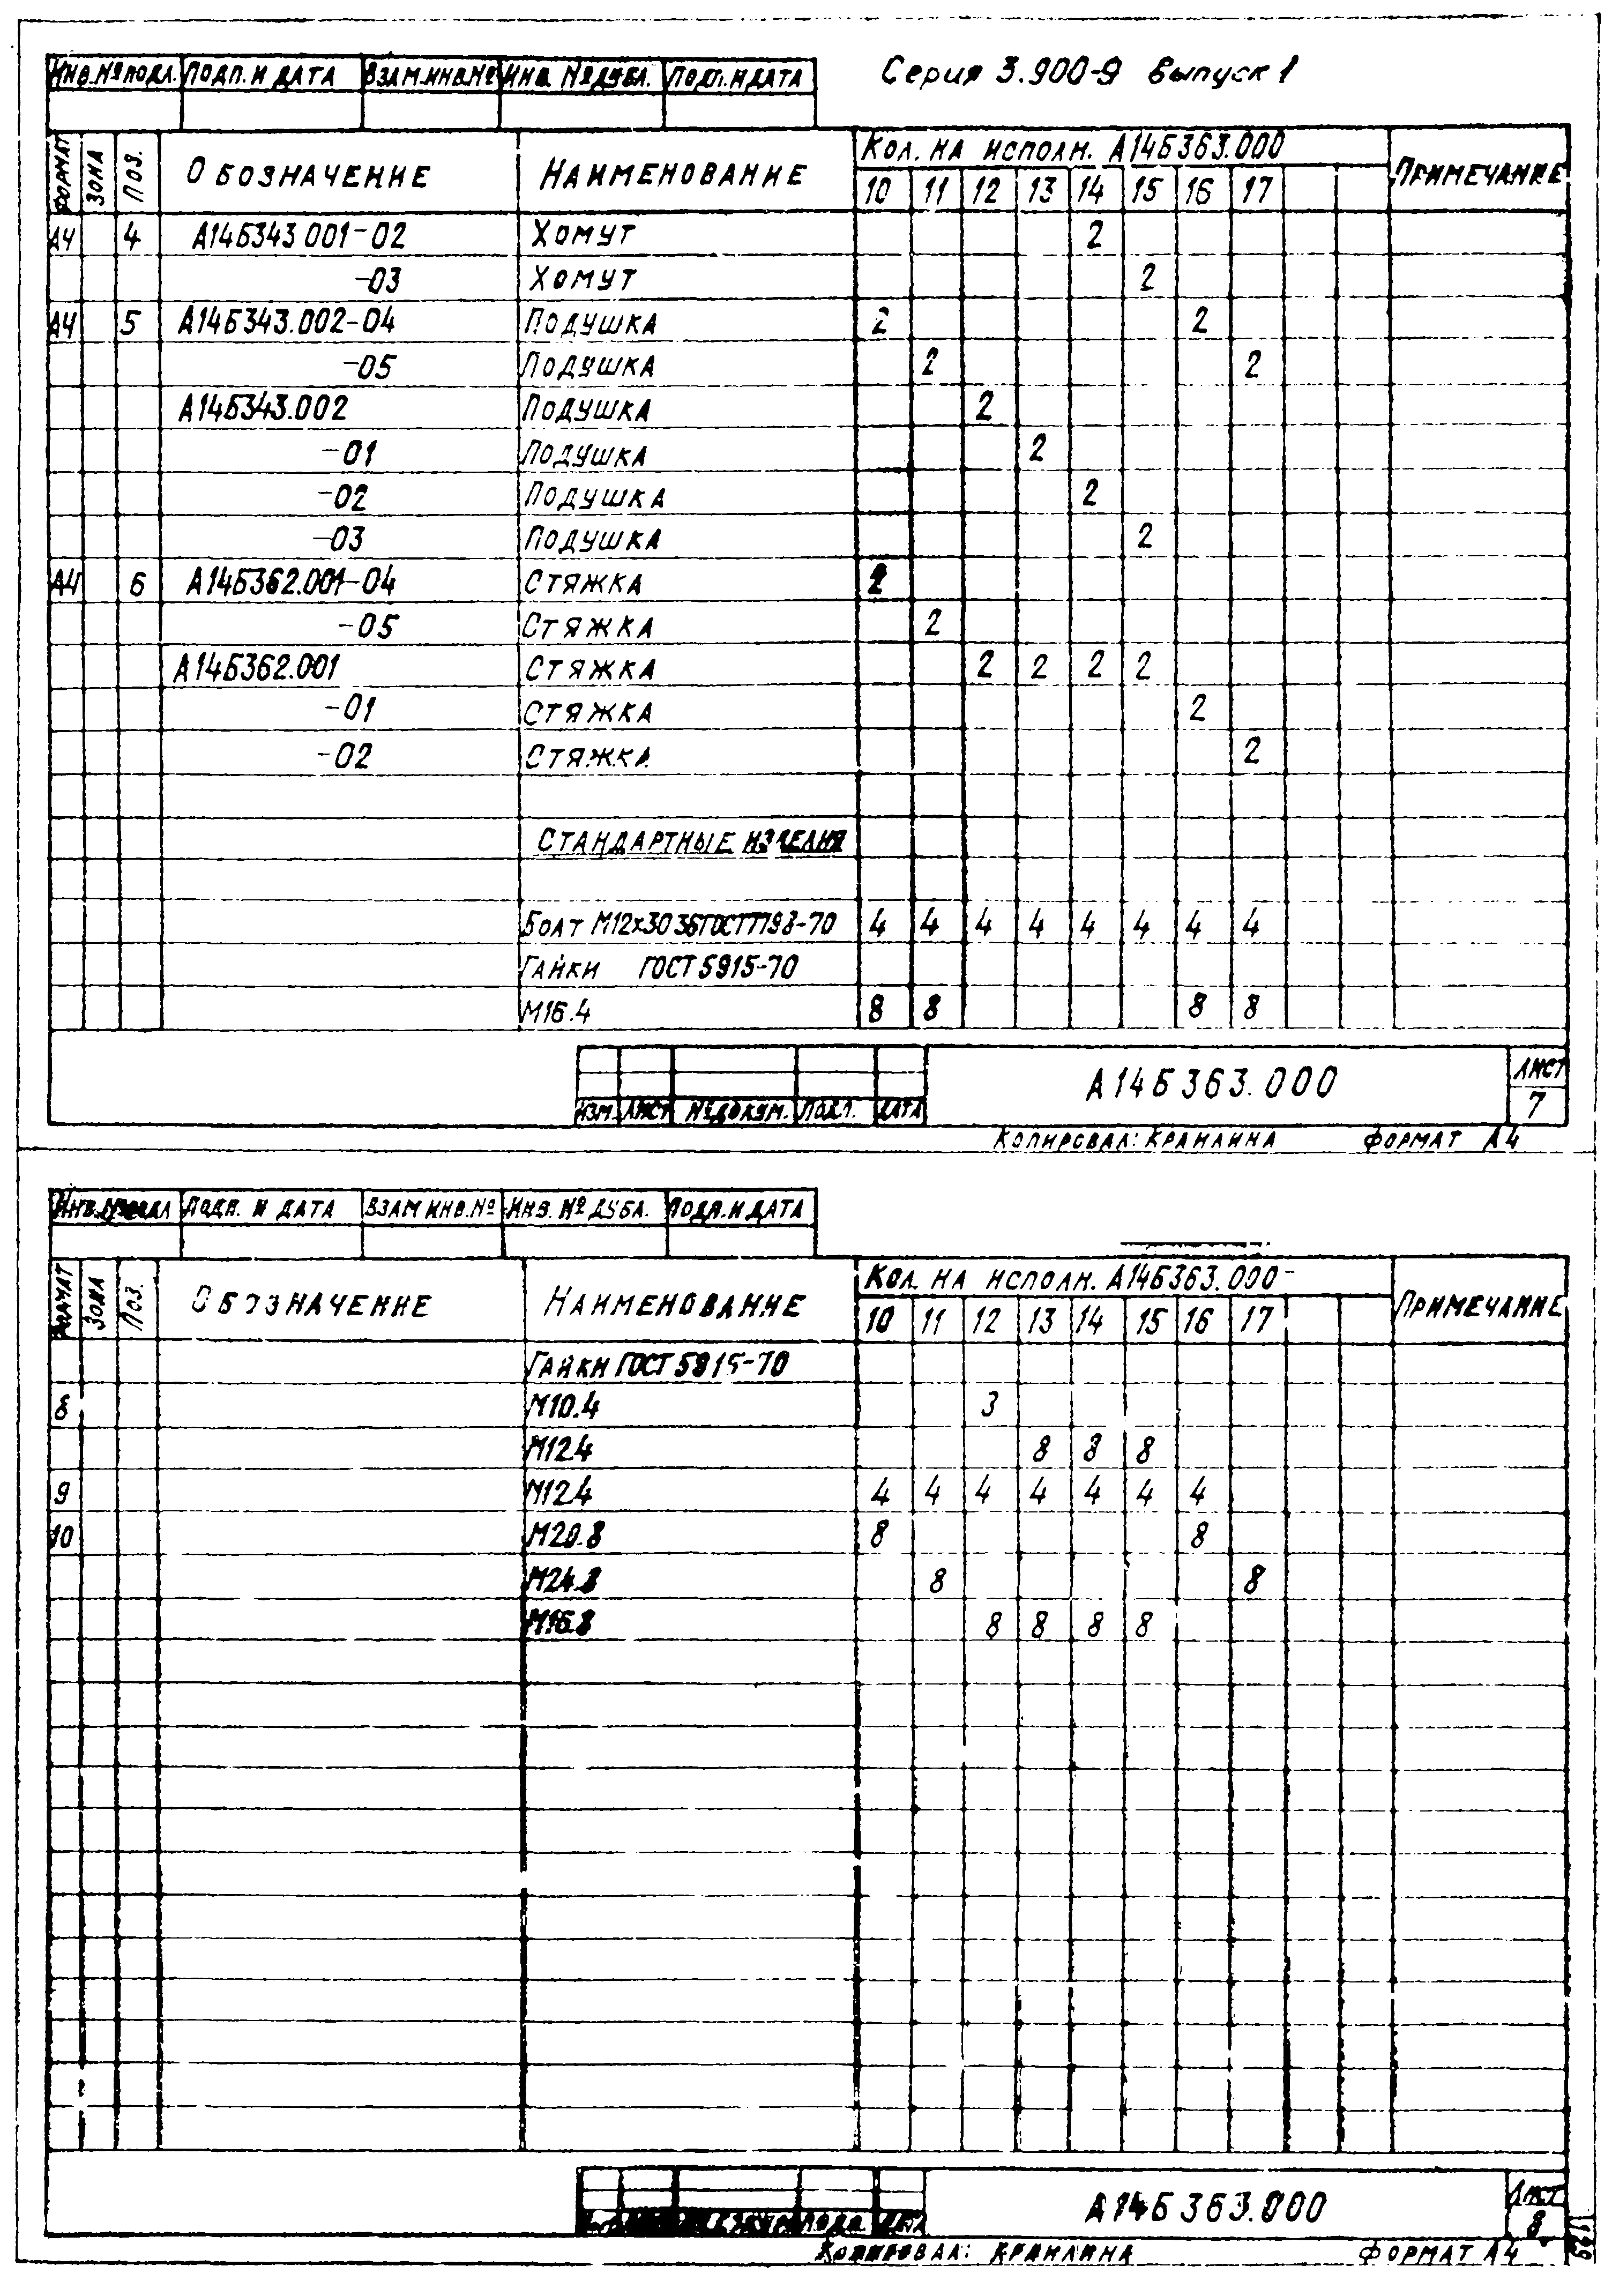 Серия 3.900-9 выпуск 1
Инв.№ подл. Подп. и дата Взам.инв.№ Инв. №дубл. Подп. и дата
Формат Зона Поз. Обозначение Наименование Кол. на исполн. А14Б363.000 Примечание
10 11 12 13 14 15 16 17
А4 4 А14Б343.001-02 Хомут 2
-03 Хомут 2
А4 5 А14Б343.002-04 Подушка 2 2
-05 Подушка 2 2
А14Б343.002 Подушка 2
-01 Подушка 2
-02 Подушка 2
-03 Подушка 2
А4 6 А14Б362.001-04 Стяжка 2
-05 Стяжка 2
А14Б362.001 Стяжка 2 2 2 2
-01 Стяжка 2
-02 Стяжка 2
Стандартные изделия
Болт М12х30 36 ГОСТ7798-70 4 4 4 4 4 4 4 4
Гайки ГОСТ 5915-70
М16.4 8 8 8 8
Изм. Лист №докум. Подп. Дата А14Б363.000 Лист 7
Копировал: Крайлина Формат А4
Инв.№подл Подп. и дата Взам инв.№ Инв. № дубл. Подп. и дата
Формат Зона Поз. Обозначение Наименование Кол. на исполн. А14Б363.000- Примечание
10 11 12 13 14 15 16 17
Гайки ГОСТ 5915-70
8 М10.4 3
М12.4 8 8 8
9 М12.4 4 4 4 4 4 4 4
10 М20.8 8 8
М24.8 8 8
М16.8 8 8 8 8
Подп. Дата А14Б363.000 Лист 8
Копировал: Крайлина Формат А4